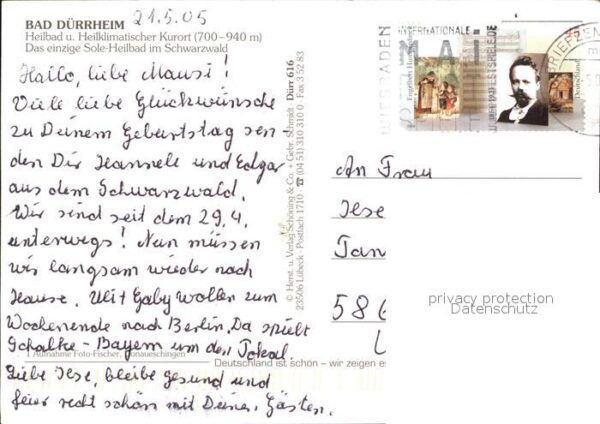 BAD DÜRRHEIM
21.5.05
Heilbad u. Heilklimatischer Kurort (700-940 m)
Das einzige Sole-Heilbad im Schwarzwald
Hallo, liebe Mausi!
Viele liebe Glückwünsche
zu Deinem Geburtstag sen
den Dir Hannele und Edgar
aus dem Schwarzwald.
Wir sind seit dem 29.4.
unterwegs! Nun müssen
wir langsam wieder nach
Hause. Mit Gaby wollen zum
Wochenende nach Berlin. Da spielt
Schalke - Bayern um den Pokal.
Aufnahme Foto-Fischer, Donaueschingen
Deutschland ist schön – wir zeigen es
Liebe Ilse, bleibe gesund und
feier recht schön mit Deinen Gästen.
© Herst. u. Verlag Schöning & Co. + Gebr. Schmidt · Dürr 616
23506 Lübeck · Postfach 1710 · ☎ (04 51) 310 310 0 · Fax 3 52 83
WIESBADEN
INTERNATIONALE
MAI
FESTSPIELE.DE
BRIEFZEN
Engelbert Hum
Deutschland
An Frau
Ilse
Tan
586
privacy protection
Datenschutz